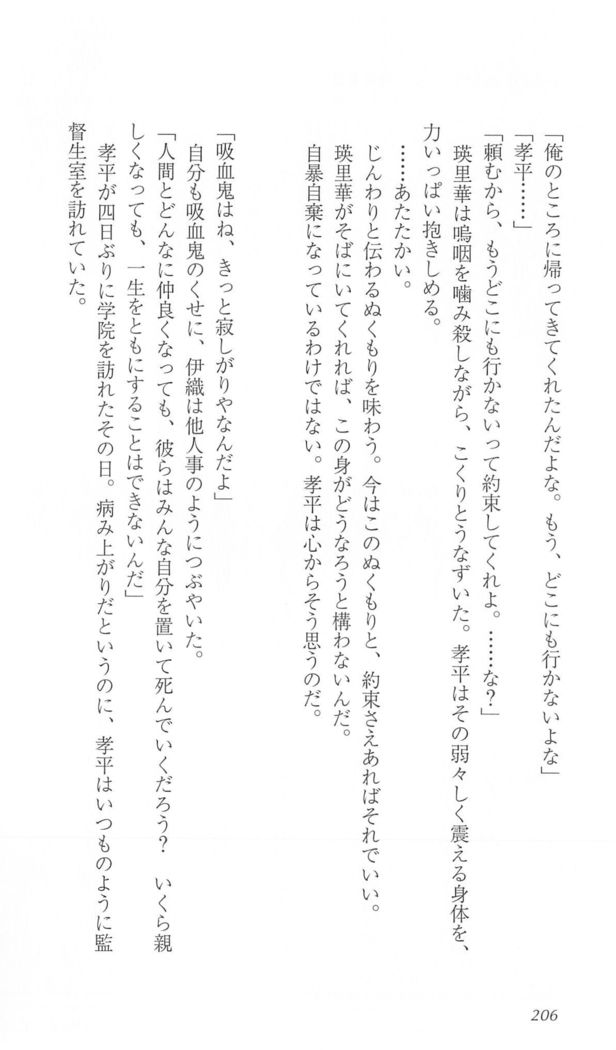 「俺のところに帰ってきてくれたんだよな。もう、どこにも行かないよな」
「孝平……」
「頼むから、もうどこにも行かないって約束してくれよ。……な？」
瑛里華は嗚咽を噛み殺しながら、こくりとうなずいた。孝平はその弱々しく震える身体を、
力いっぱい抱きしめる。
……あたたかい。
じんわりと伝わるぬくもりを味わう。今はこのぬくもりと、約束さえあればそれでいい。
瑛里華がそばにいてくれれば、この身がどうなろうと構わないんだ。
自暴自棄になっているわけではない。孝平は心からそう思うのだ。
「吸血鬼はね、きっと寂しがりやなんだよ」
自分も吸血鬼のくせに、伊織は他人事のようにつぶやいた。
「人間とどんなに仲良くなっても、彼らはみんな自分を置いて死んでいくだろう？　いくら親
しくなっても、一生をともにすることはできないんだ」
孝平が四日ぶりに学院を訪れたその日。病み上がりだというのに、孝平はいつものように監
督生室を訪れていた。
206